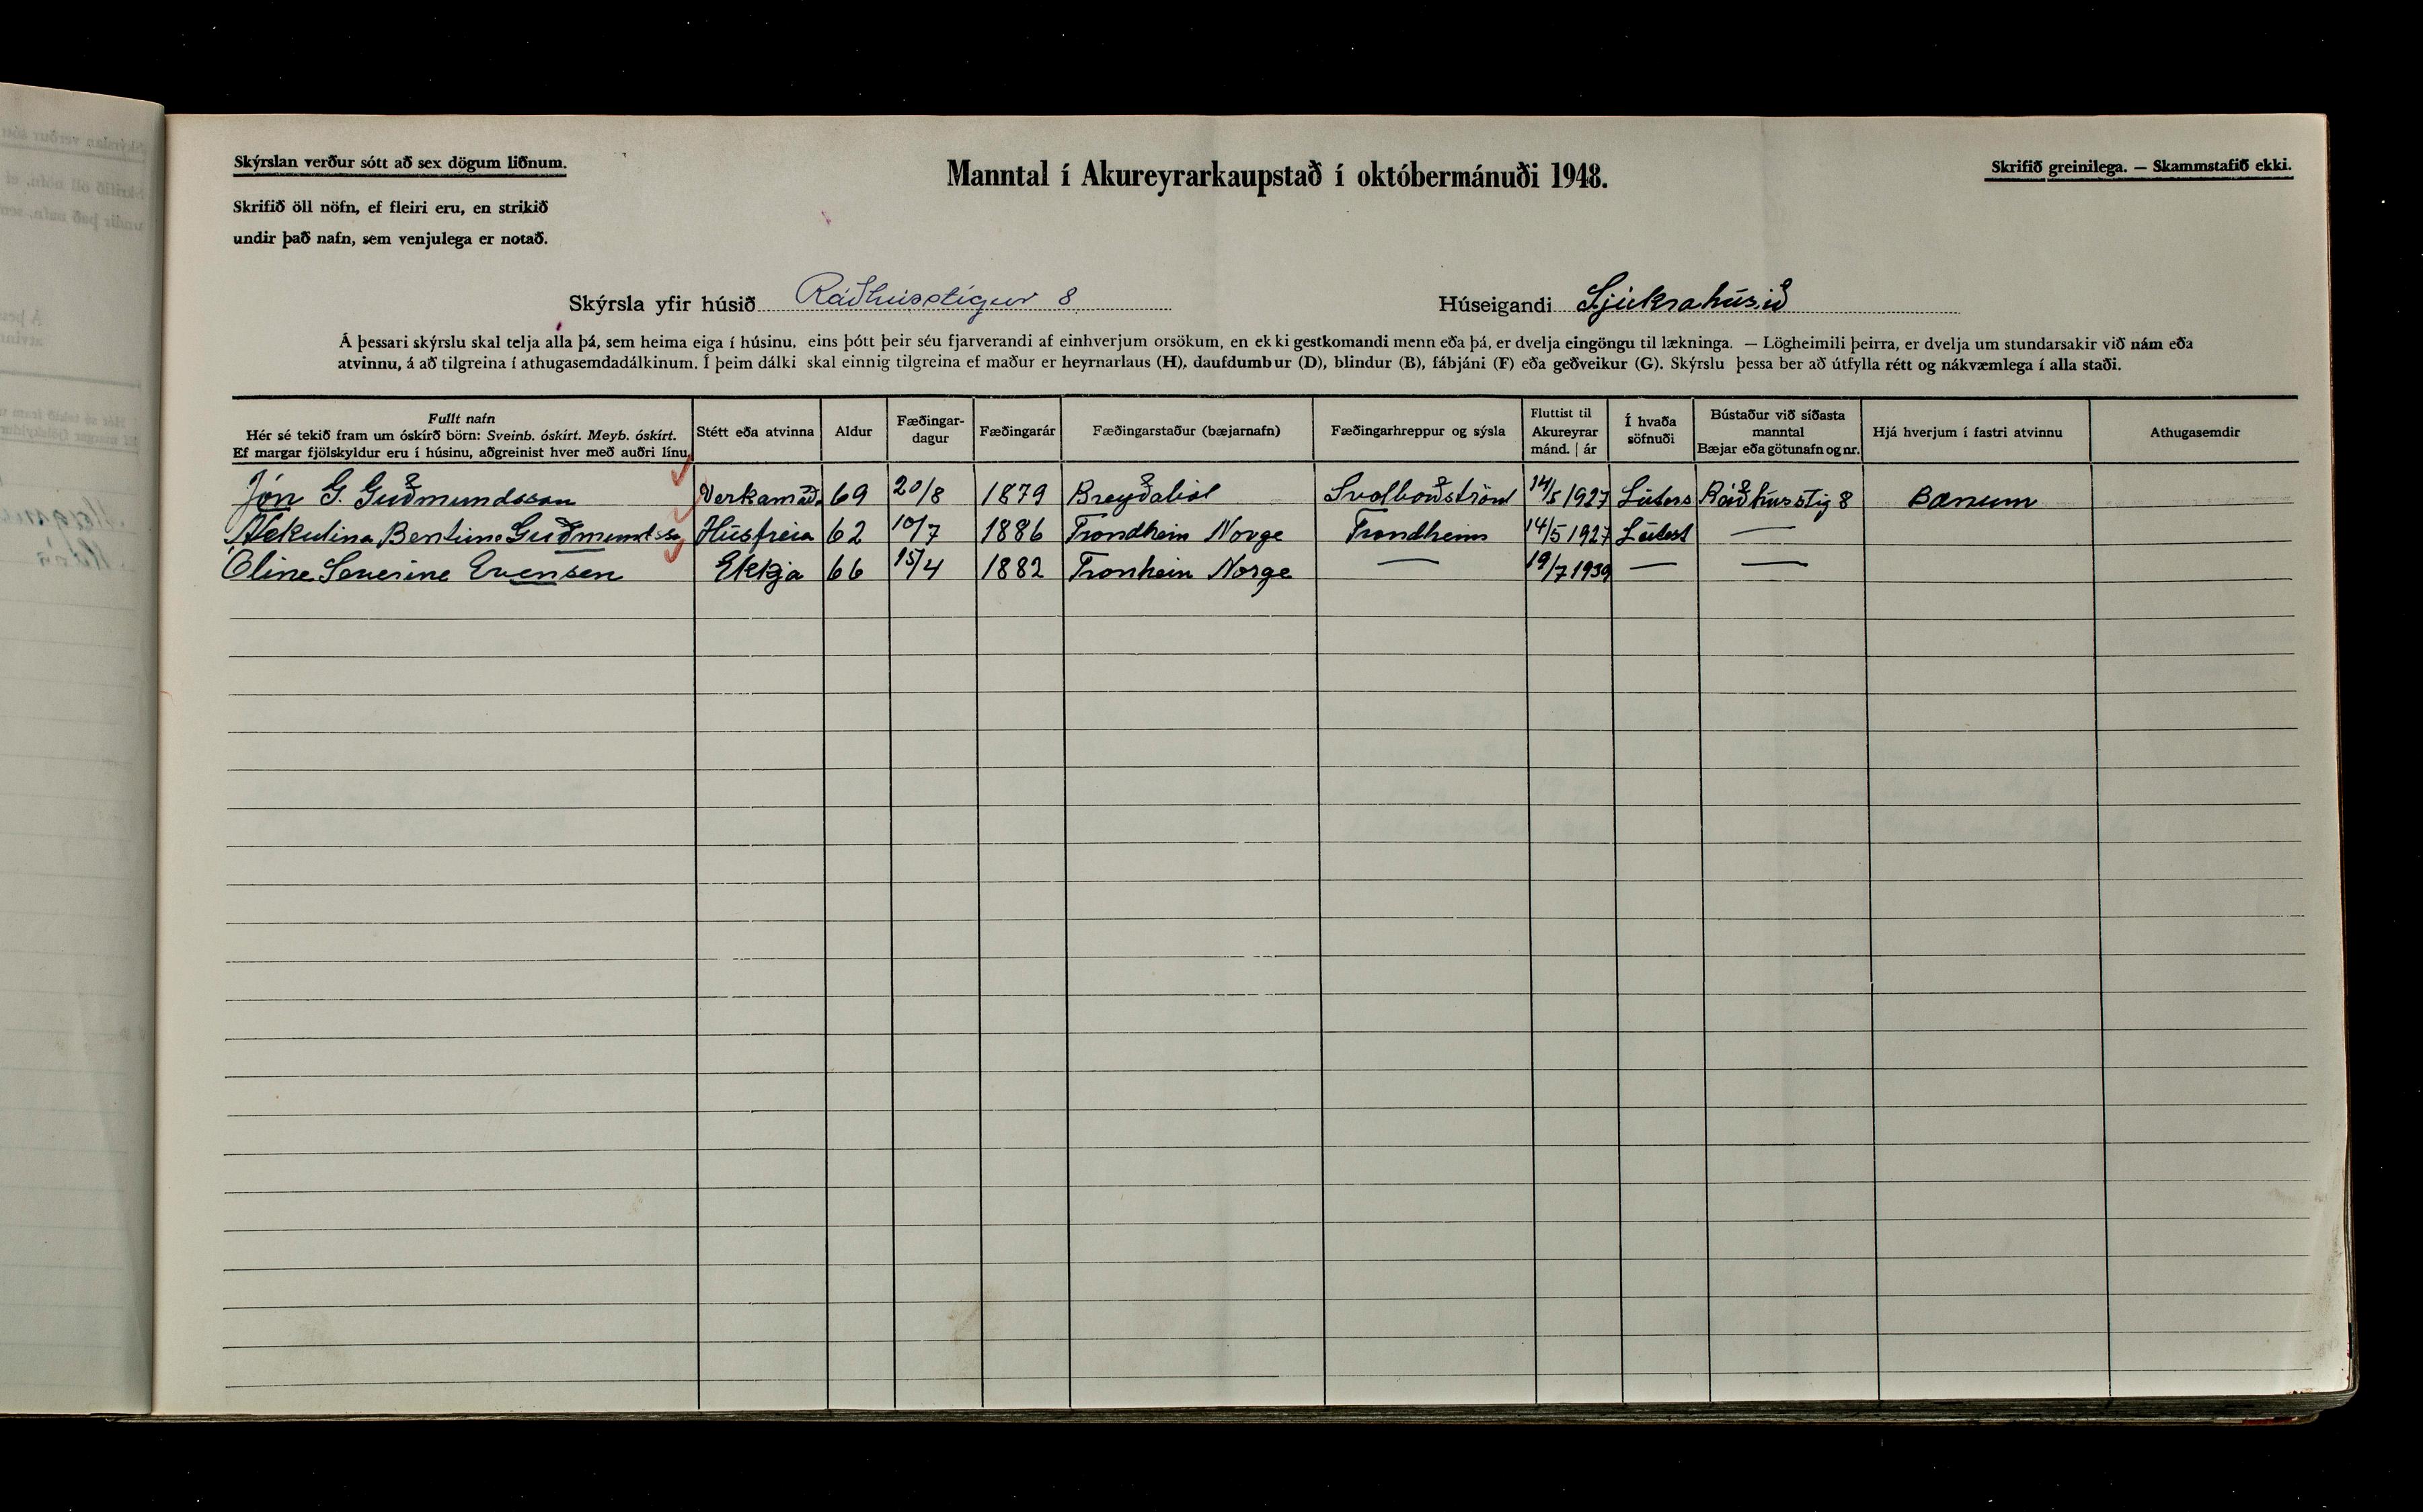 Skýrslan verður sótt að sex dögum liðnum.
Manntal í Akureyrarkaupstað í októbermánuði 1948.
Skrifið greinilega. — Skammstafið ekki.
Skrifið öll nöfn, ef fleiri eru, en strikið
undir það nafn, sem venjulega er notað.
Skýrsla yfir húsið Ráðhússtígur 8
Húseigandi Sjúkrahúsið
Á þessari skýrslu skal telja alla þá, sem heima eiga í húsinu, eins þótt þeir séu fjarverandi af einhverjum orsökum, en ekki gestkomandi menn eða þá, er dvelja eingöngu til lækninga. — Lögheimili þeirra, er dvelja um stundarsakir við nám eða
atvinnu, á að tilgreina í athugasemdadálkinum. Í þeim dálki skal einnig tilgreina ef maður er heyrnarlaus (H), daufdumbur (D), blindur (B), fábjáni (F) eða geðveikur (G). Skýrslu þessa ber að útfylla rétt og nákvæmlega í alla staði.
Fullt nafn
Hér sé tekið fram um óskírð börn: Sveinb. óskírt. Meyb. óskírt.
Ef margar fjölskyldur eru í húsinu, aðgreinist hver með auðri línu.
Stétt eða atvinna
Aldur
Fæðingar-
dagur
Fæðingarár
Fæðingarstaður (bæjarnafn)
Fæðingarhreppur og sýsla
Fluttist til
Akureyrar
mánd. | ár
Í hvaða
söfnuði
Bústaður við síðasta
manntal
Bæjar eða götunafn og nr.
Hjá hverjum í fastri atvinnu
Athugasemdir
Jón G. Guðmundsson Verkamað. 69 20/8 1879 14/5 1927 Lúters Ráðhússtíg 8 Bænum
Bentine Guðmundsso Húsfreia 62 10/7 1886 Trondhein Norge Trondheim 14/5 1927 Lútest —
Oline Severine Evensen Ekkja 66 15/4 1882 Tronhein Norge — 19/7 1939 — —